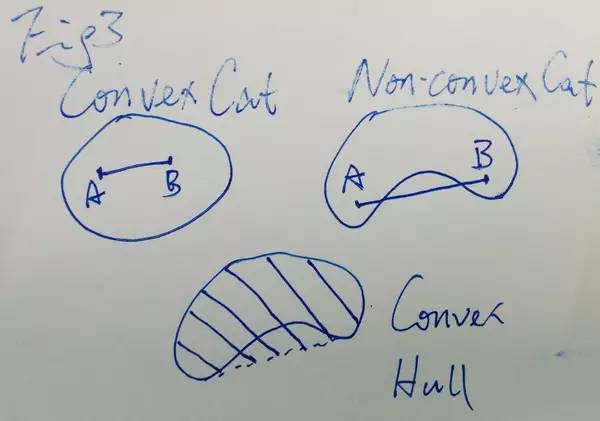 Fig3
Convex Cat
Non-convex Cat
A
B
A
B
Convex
Hull